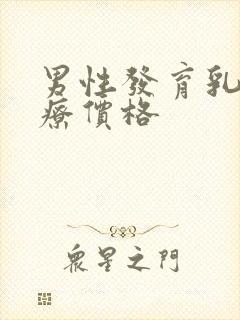 男性發育乳
療價格
衆星之門